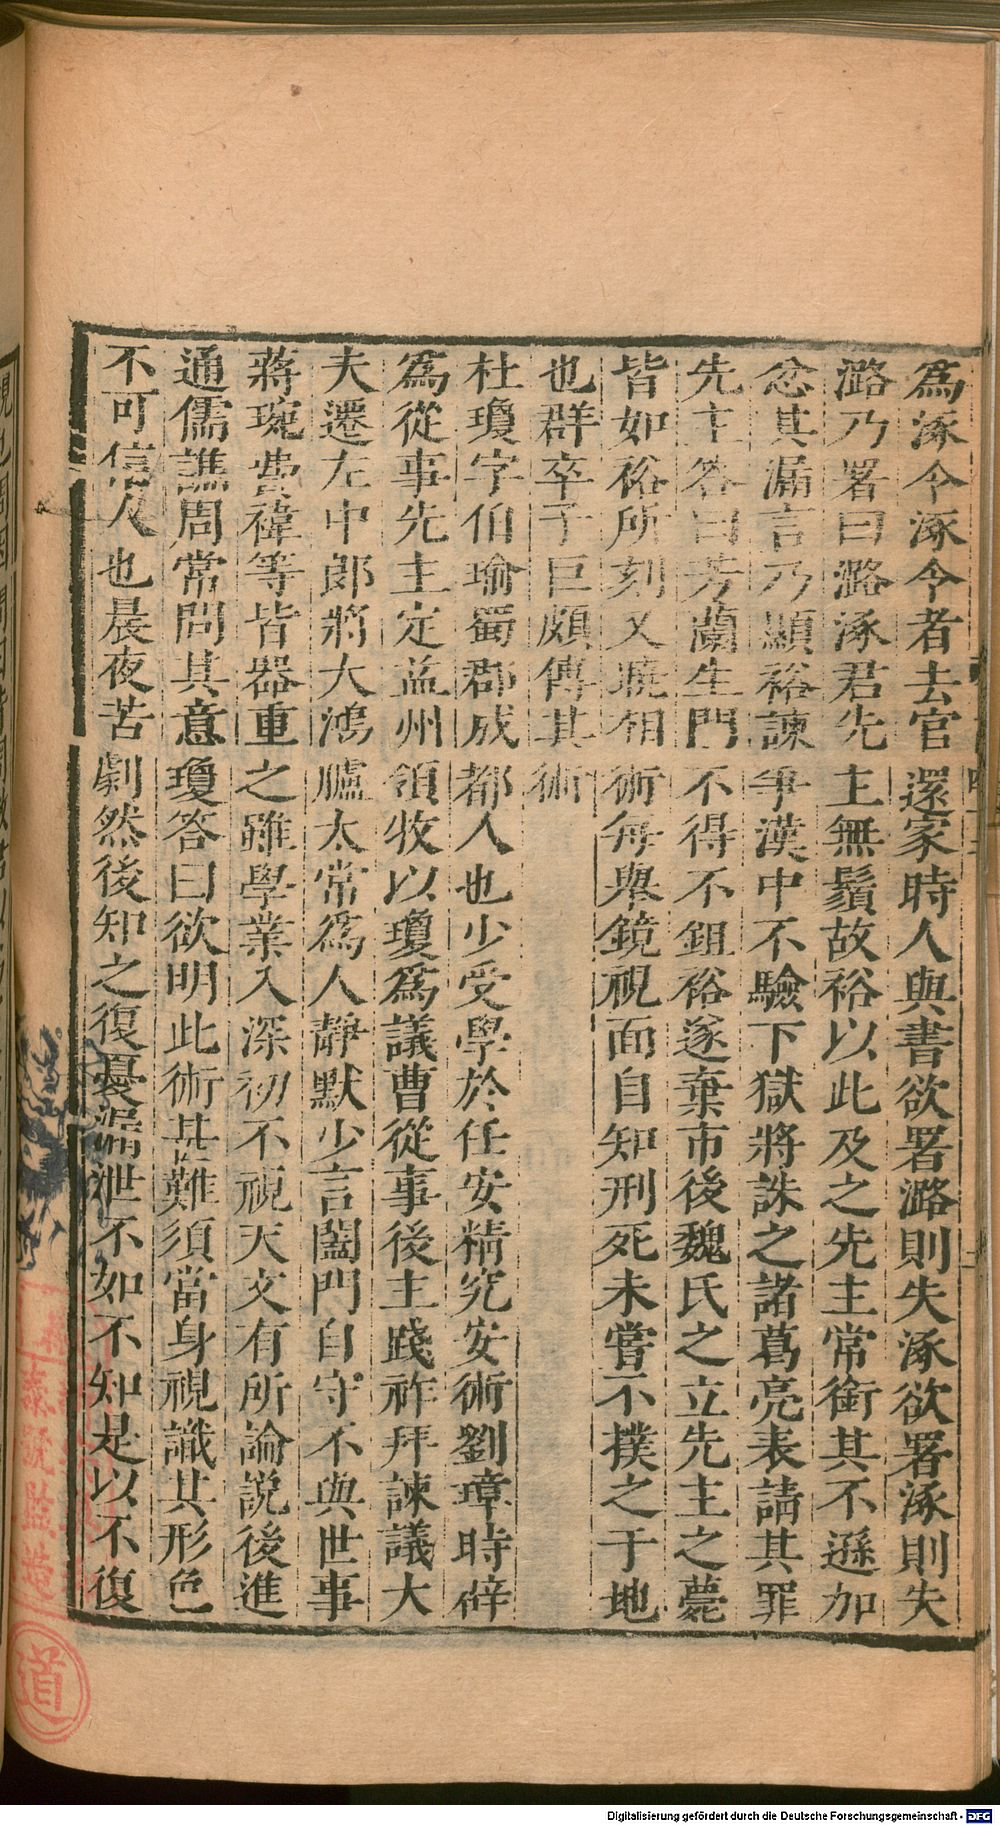 爲涿令涿令者去官還家時人與書欲署潞則失涿欲署涿則失
潞乃署曰潞涿君先主無鬚故裕以此及之先主常銜其不遜加
忿其漏言乃顯裕諫爭漢中不驗下獄將誅之諸葛亮表請其罪
先主答曰芳蘭生門不得不鉏裕遂棄市後魏氏之立先主之薨
皆如裕所刻又曉相術每舉鏡視面自知刑死未嘗不撲之于地
也群卒子巨頗傳其術
杜瓊字伯瑜蜀郡成都人也少受學於任安精究安術劉璋時辟
爲從事先主定益州領牧以瓊爲議曹從事後主踐祚拜諫議大
夫遷左中郎將大鴻臚太常爲人靜默少言闔門自守不與世事
蔣琬費禕等皆器重之雖學業入深初不視天文有所論說後進
通儒譙周常問其意瓊答曰欲明此術甚難須當身視識其形色
不可信人也晨夜苦劇然後知之復憂漏泄不如不知是以不復
道
Digitalisierung gefördert durch die Deutsche Forschungsgemeinschaft - DFG